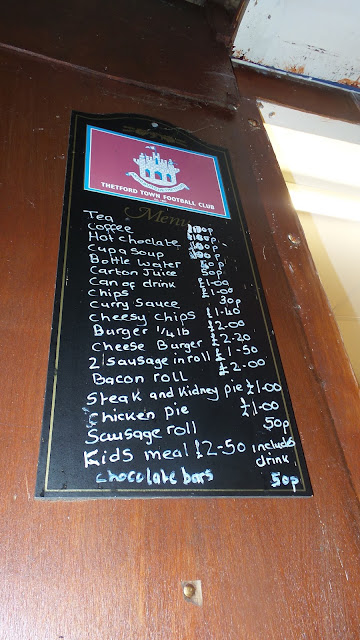 THETFORD TOWN FOOTBALL CLUB
Menu
Tea
Coffee
Hot choclate
Cup a Soup
Bottle water
Carton Juice 50p
Can of drink £1-00
Chips £1-00
Curry Sauce 30p
Cheesy Chips £1-40
Burger 1/4 lb £2-00
Cheese Burger £2-20
2 Sausage in roll £1-50
Bacon roll £2-00
Steak and Kidney pie £1-00
Chicken pie £1-00
Sausage roll 50p
Kids meal £2-50 includes
drink
chocolate bars 50p